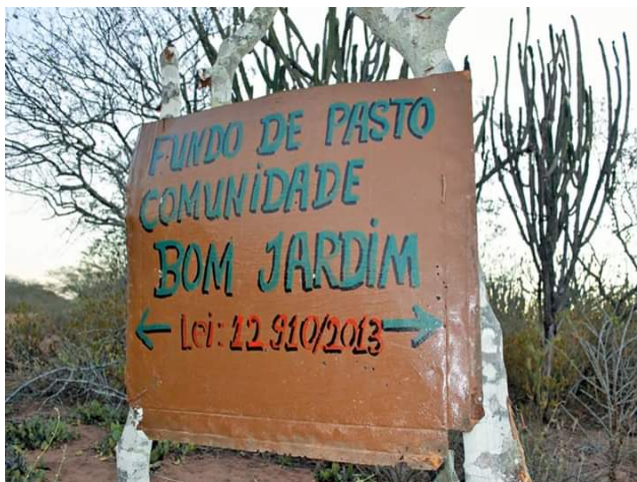 FUNDO DE PASTO
COMUNIDADE
BOM JARDIM
← Lei: 12.910/2013 →